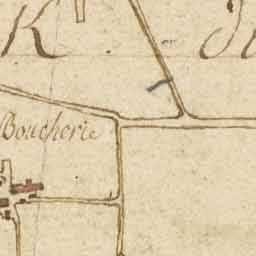 K
Boucherie